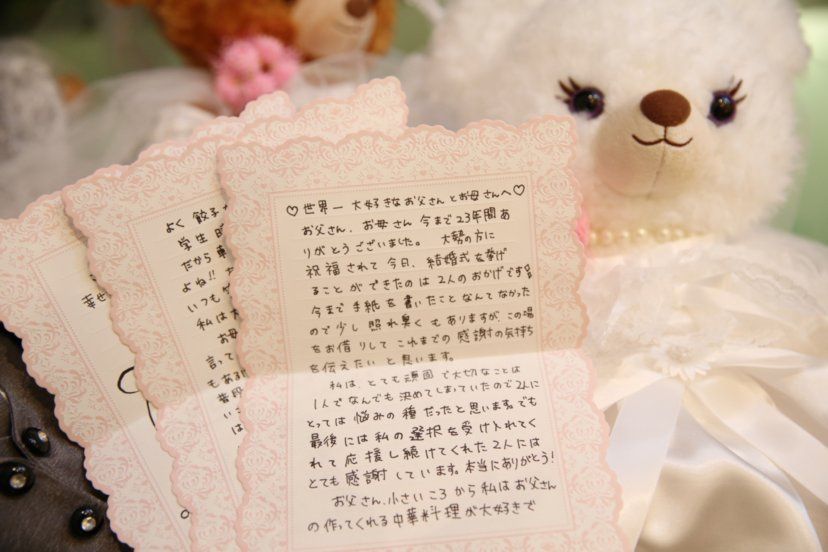 ♡世界一 大好きなお父さんとお母さんへ♡
お父さん、お母さん 今まで23年間あ
りがとうございました。 大勢の方に
祝福されて今日、結婚式を挙げ
ることができたのは2人のおかげです
今まで手紙を書いたことなんてなかった
ので少し照れ臭くもありますが、この場
をお借りしてこれまでの感謝の気持ち
を伝えたいと思います。
私は、とても頑固で大切なことは
1人でなんでも決めてしまっていたので2人に
とっては悩みの種だったと思います。でも
最後には私の選択を受け入れてく
れて応援し続けてくれた2人には
とても感謝しています。本当にありがとう!
お父さん、小さいころから私はお父さん
の作ってくれる中華料理が大好きで
よく餃子
学生
だから
よね!!
いつも
私は
お母
言って
もある
普段
いこ
は
幸せ